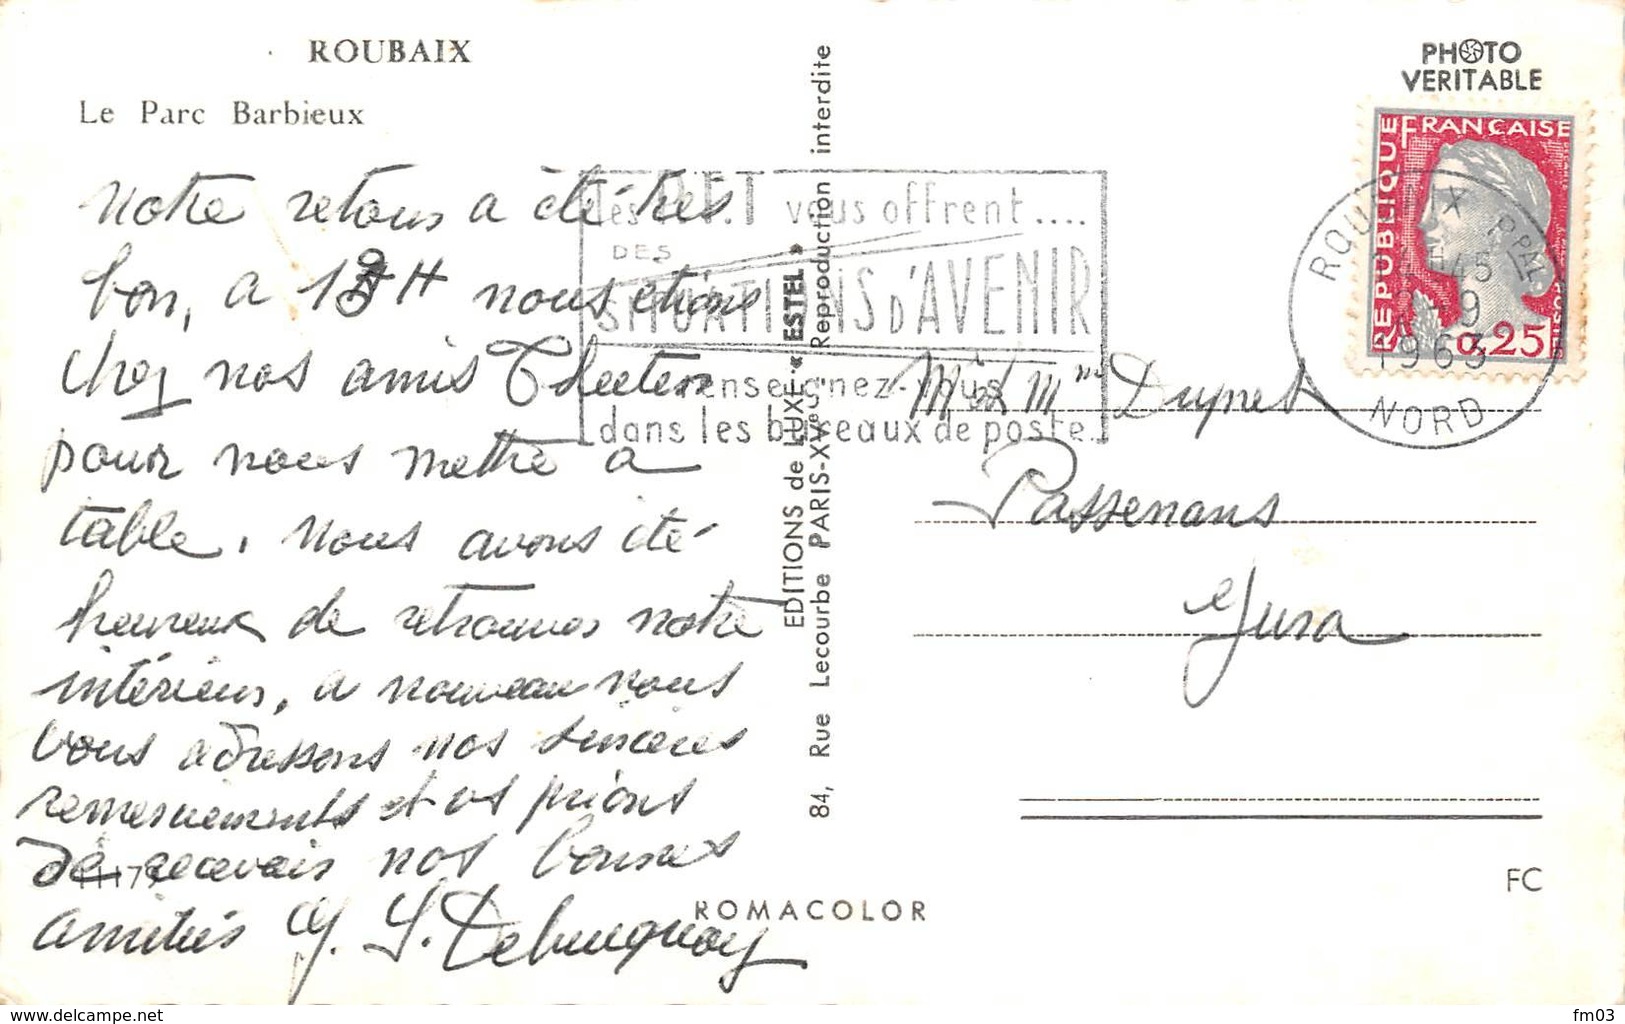 ROUBAIX
Le Parc Barbieux
Notre retour a été très
bon, a 1 H nous étions
chez nos amis
pour nous mettre a
table. Nous avons été
heureux de retrouver notre
intérieur, a nouveau nous
vous adressons nos sincères
remerciements et vs prions
de recevoir nos bonnes
amitiés
Les P.E.T vous offrent ....
DES
SITUATIONS D'AVENIR
Renseignez-vous
dans les bureaux de poste.
EDITIONS de LUXE « ESTEL »
84, Rue Lecourbe PARIS-XVe - Reproduction interdite
PHOTO
VERITABLE
REPUBLIQUE FRANÇAISE
0,25
ROUBAIX PPAL
45
9
1963
NORD
Mr et Mme Dupret
Passenans
Jura
FC
ROMACOLOR
www.delcampe.net
fm03